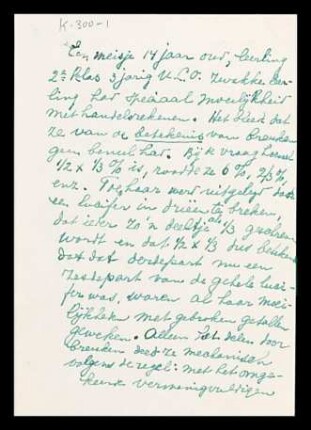 K-300-1
Een meisje 14 jaar oud, leerling
2e klas 3 jarig U.L.O. zwakke leer-
ling had speciaal moeilijkheid
met handelsrekenen. Het bleek dat
ze van de betekenis van breuken
geen benul had. Bij de vraag hoeveel
1/2 x 1/3 % is, raadde ze 6 %, 2/3 %
enz. Toen haar werd uitgelegd door
een lucifer in drieën te breken,
dat ieder zo'n deeltje als 1/3 geschreven
wordt en dat 1/2 x 1/3 dus betekent
dat dat derdepart nu een
zesdepart van de gehele luci-
fer was, waren al haar moei-
lijkheden met gebroken getallen
geweken. Alleen het delen door
breuken deed ze mechanisch
volgens de regel: met het omge-
keerde vermenigvuldigen